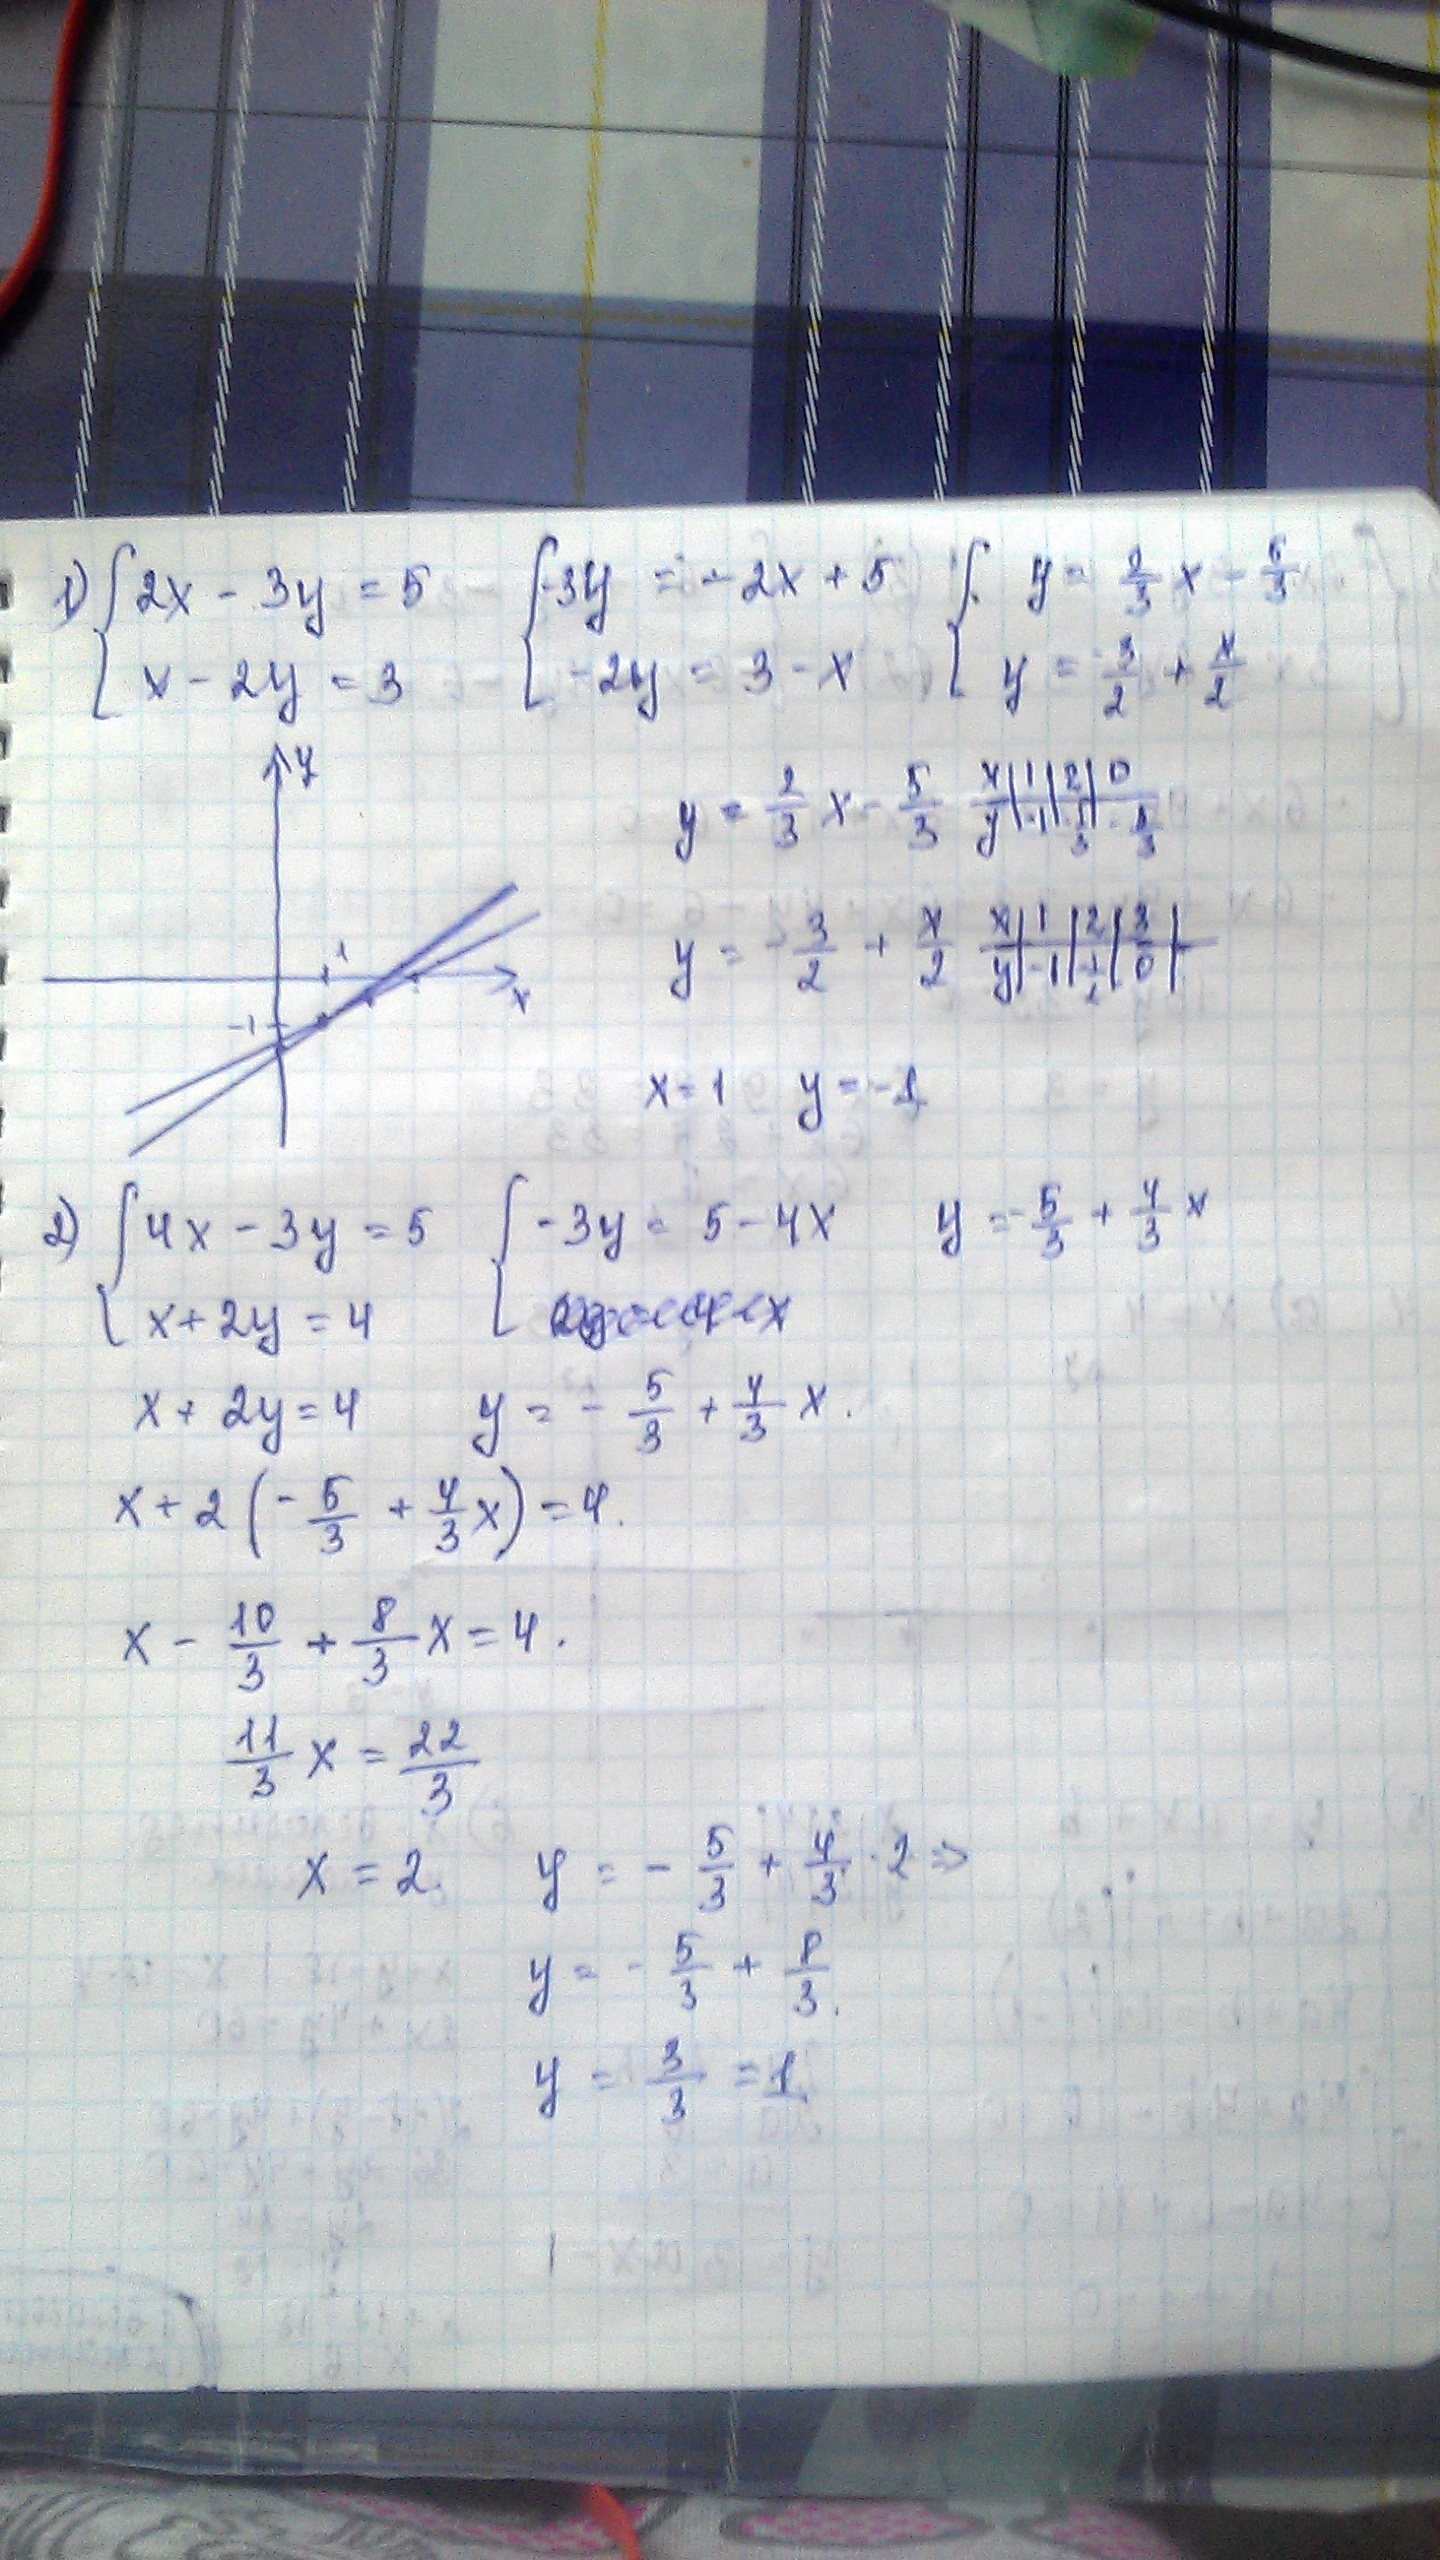 1) { 2x - 3y = 5 { -3y = -2x + 5 { y = 2/3 x - 5/3
x - 2y = 3 -2y = 3 - x y = -3/2 + x/2
y
y = 2/3 x - 5/3 x | 1 | 2 | 0
y | -1 | -1/3 | -5/3
1
y = -3/2 + x/2 x | 1 | 2 | 3 |
y | -1 | -1/2 | 0 |
x
-1
x = 1 y = -1
2) { 4x - 3y = 5 { -3y = 5 - 4x y = -5/3 + 4/3 x
x + 2y = 4
x + 2y = 4 y = - 5/3 + 4/3 x.
x + 2 (- 5/3 + 4/3 x) = 4.
x - 10/3 + 8/3 x = 4.
11/3 x = 22/3
x = 2. y = - 5/3 + 4/3 · 2 =>
y = - 5/3 + 8/3.
y = 3/3 = 1.